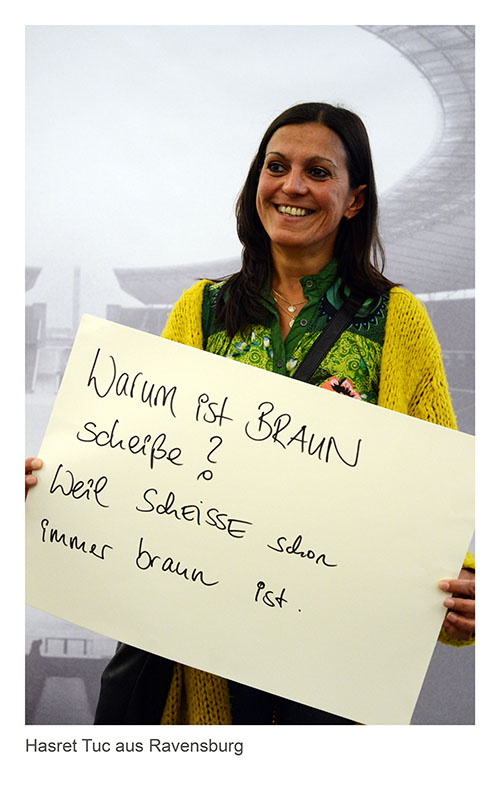 Warum ist BRAUN
scheiße?
Weil SCHEISSE schon
immer braun ist.
Hasret Tuc aus Ravensburg